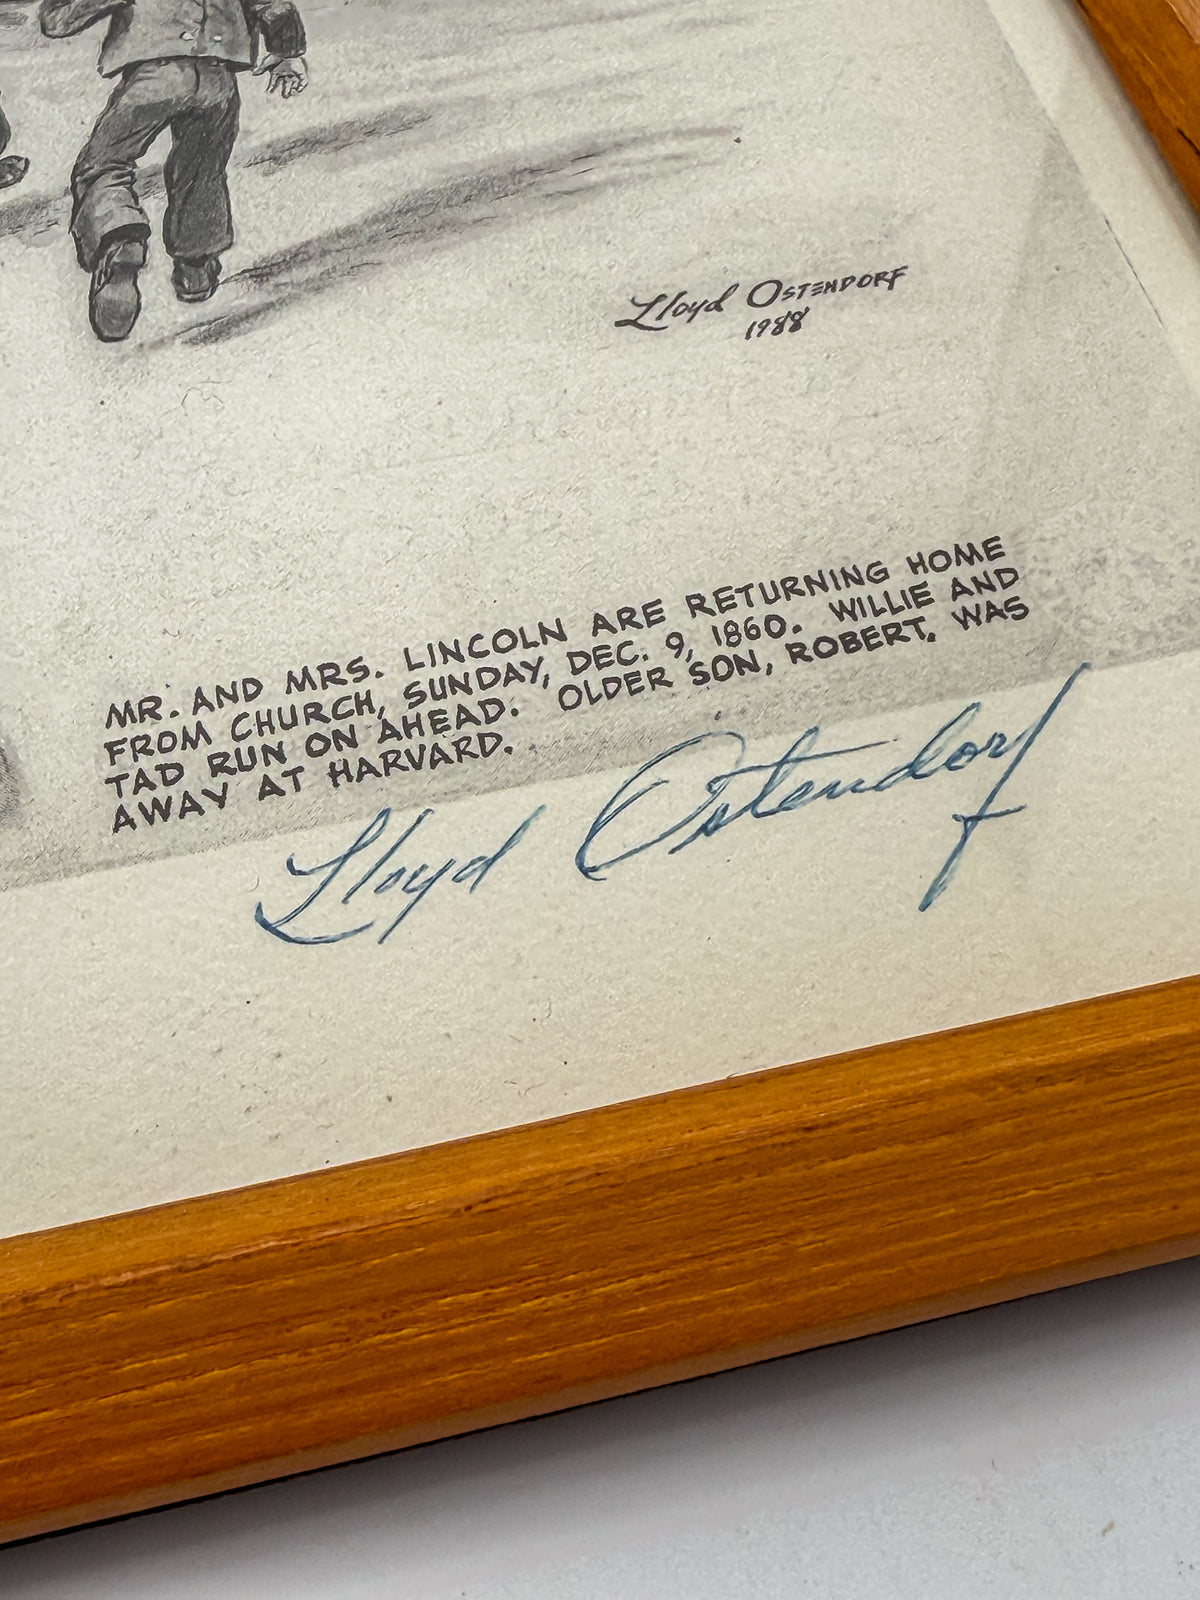 Lloyd OSTENDORF
1988
MR. AND MRS. LINCOLN ARE RETURNING HOME
FROM CHURCH, SUNDAY, DEC. 9, 1860. WILLIE AND
TAD RUN ON AHEAD. OLDER SON, ROBERT, WAS
AWAY AT HARVARD.
Lloyd Ostendorf